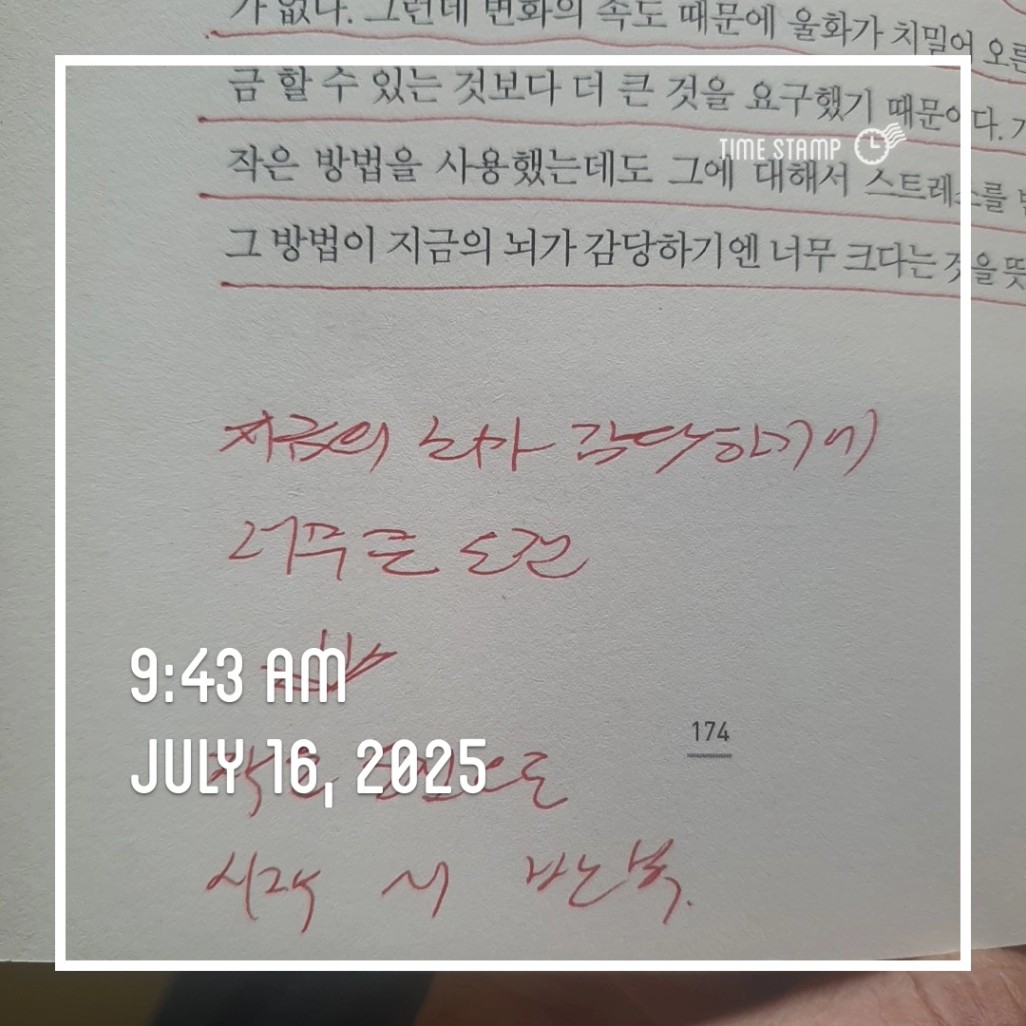 가 없다. 그런데 변화의 속도 때문에 울화가 치밀어 오른
금 할 수 있는 것보다 더 큰 것을 요구했기 때문이다.
TIME STAMP
작은 방법을 사용했는데도 그에 대해서 스트레스를
그 방법이 지금의 뇌가 감당하기엔 너무 크다는 것을 뜻
지금의 뇌가 감당하기에
너무 큰 도전
9:43 AM
174
JULY 16, 2025
작은 도전으로
시작 반복.